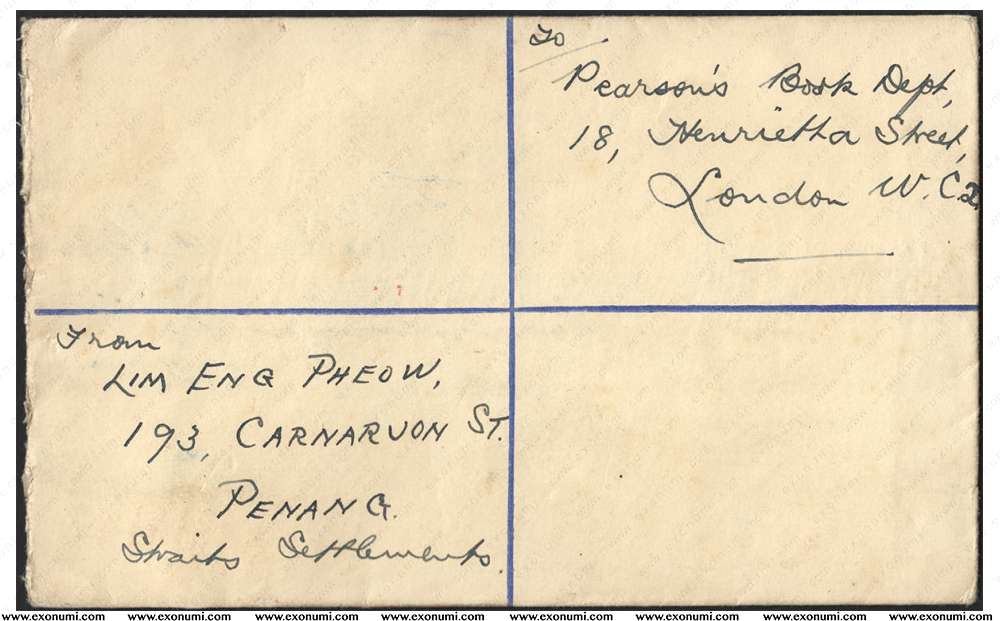 To
Pearson's Book Dept,
18, Henrietta Street,
London W.C2.
From
LIM ENG PHEOW,
193, CARNARVON ST.
PENANG.
Straits Settlements.
www.exonumi.com www.exonumi.com www.exonumi.com www.exonumi.com www.exonumi.com www.exonumi.com www.exonumi.com www.exonumi.com